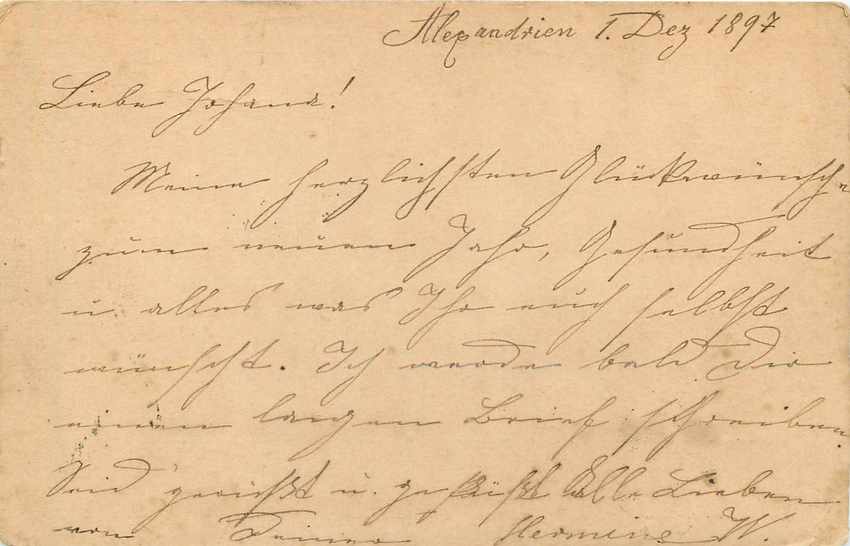 Alexandrien 1. Dez 1897
Liebe Johana!
Meine herzlichsten Glückwünsche
zum neuen Jahr, Gesundheit
u. alles was Ihr euch selbst
wünscht. Ich werde bald Dir
einen langen Brief schreiben.
Seid gegrüßt u. geküßt Alle Lieben
von Deiner Hermine W.